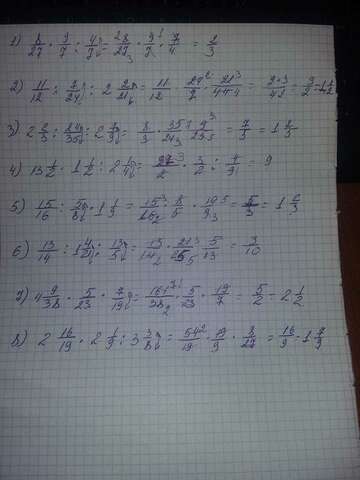 1) 8/27 · 9/7 : 4/7 = 28/27 3 · 9 1/7 · 7/4 = 2/3
2) 11/12 : 7/24 : 2 2/21 = 11/12 · 24 2/7 · 21 3/44 4 = 2·3/4 = 3/2 = 1 1/2
3) 2 2/3 : 24/35 : 2 7/9 = 8/3 · 35 7/24 3 · 9 3/25 5 = 7/3 = 1 2/3
4) 13 1/2 · 1 1/2 : 2 1/4 = 27 3/2 · 3/2 : 4/9 = 9
5) 15/16 : 5/8 · 1 1/9 = 15 3/16 2 · 8/5 · 10 5/9 3 = 5/3 = 1 2/3
6) 13/14 : 1 4/21 : 13/5 = 13/14 2 · 21 3/25 5 · 5/13 = 3/10
7) 4 9/38 · 5/23 : 7/19 = 161 7/38 2 · 5/23 · 19/7 = 5/2 = 2 1/2
8) 2 16/19 · 2 1/9 : 3 3/8 = 54 2/19 · 19/9 · 8/27 = 16/9 = 1 7/9